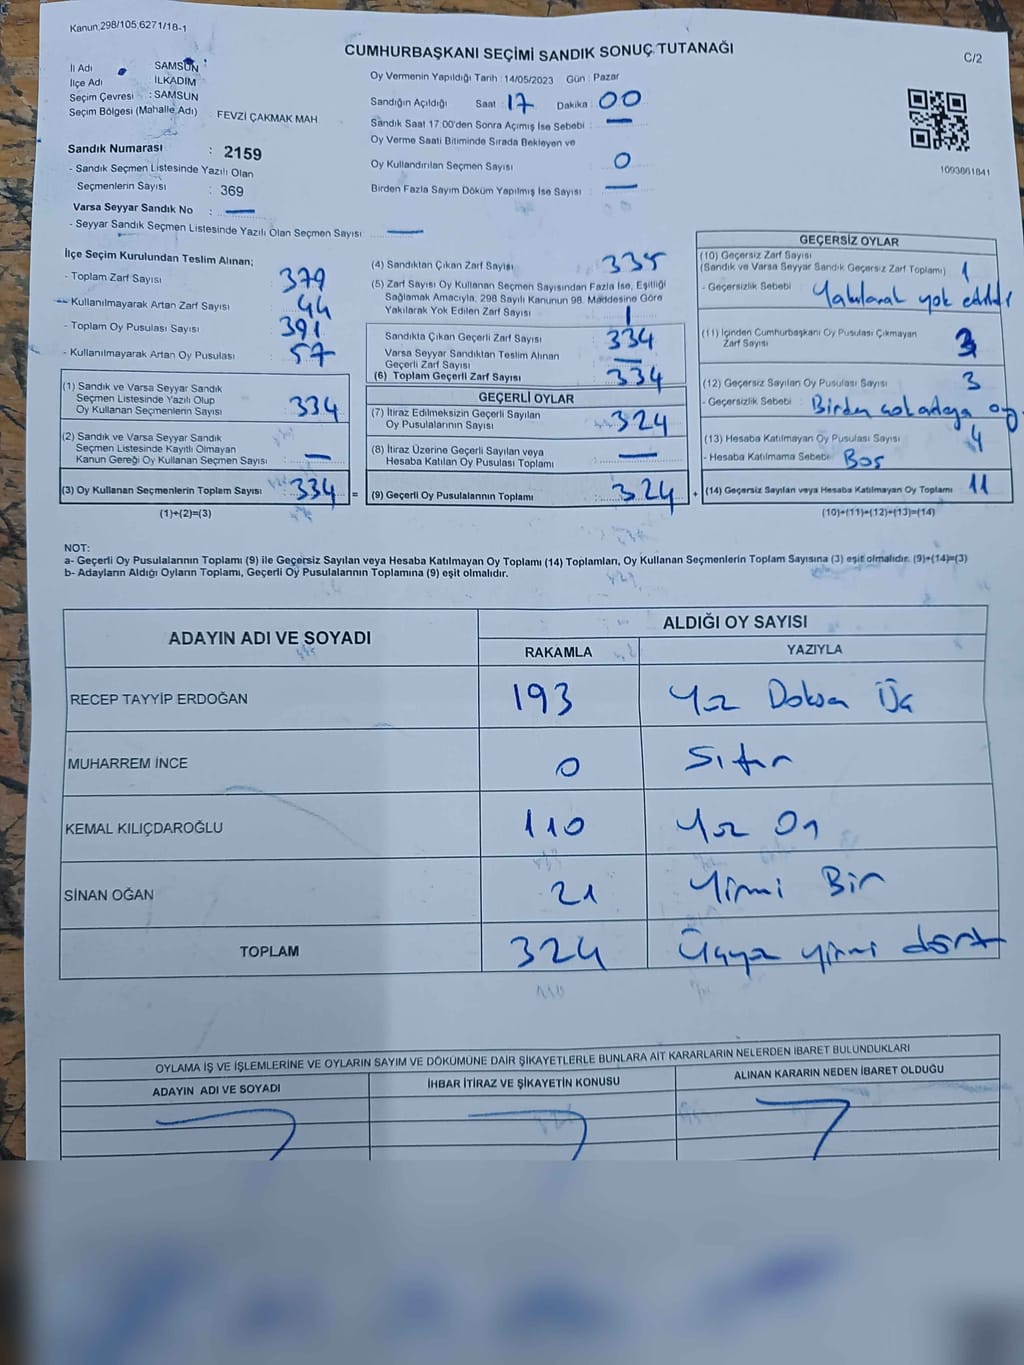 Kanun 298/105,6271/18-1
CUMHURBAŞKANI SEÇİMİ SANDIK SONUÇ TUTANAĞI
C/2
İl Adı SAMSUN
İlçe Adı İLKADIM
Seçim Çevresi : SAMSUN
Seçim Bölgesi (Mahalle Adı) FEVZİ ÇAKMAK MAH.
Oy Vermenin Yapıldığı Tarih : 14/05/2023 Gün : Pazar
Sandığın Açıldığı Saat : 17 Dakika : 00
Sandık Saat 17:00'den Sonra Açımış İse Sebebi : —
Oy Verme Saati Bitiminde Sırada Bekleyen ve
Oy Kullandırılan Seçmen Sayısı : 0
Birden Fazla Sayım Döküm Yapılmış İse Sayısı : —
1093861841
Sandık Numarası : 2159
- Sandık Seçmen Listesinde Yazılı Olan
Seçmenlerin Sayısı : 369
Varsa Seyyar Sandık No : —
- Seyyar Sandık Seçmen Listesinde Yazılı Olan Seçmen Sayısı : —
İlçe Seçim Kurulundan Teslim Alınan;
- Toplam Zarf Sayısı 379
- Kullanılmayarak Artan Zarf Sayısı 44
- Toplam Oy Pusulası Sayısı 391
- Kullanılmayarak Artan Oy Pusulası : 57
(1) Sandık ve Varsa Seyyar Sandık
Seçmen Listesinde Yazılı Olup
Oy Kullanan Seçmenlerin Sayısı : 334
(2) Sandık ve Varsa Seyyar Sandık
Seçmen Listesinde Kayıtlı Olmayan
Kanun Gereği Oy Kullanan Seçmen Sayısı : —
(3) Oy Kullanan Seçmenlerin Toplam Sayısı : 334 =
(1)+(2)=(3)
(4) Sandıktan Çıkan Zarf Sayısı : 335
(5) Zarf Sayısı Oy Kullanan Seçmen Sayısından Fazla İse, Eşitliği
Sağlamak Amacıyla, 298 Sayılı Kanunun 98. Maddesine Göre
Yakılarak Yok Edilen Zarf Sayısı : 1
Sandıkta Çıkan Geçerli Zarf Sayısı : 334
Varsa Seyyar Sandıktan Teslim Alınan
Geçerli Zarf Sayısı : —
(6) Toplam Geçerli Zarf Sayısı : 334
GEÇERLİ OYLAR
(7) İtiraz Edilmeksizin Geçerli Sayılan
Oy Pusulalarının Sayısı : 324
(8) İtiraz Üzerine Geçerli Sayılan veya
Hesaba Katılan Oy Pusulası Toplamı : —
(9) Geçerli Oy Pusulalarının Toplamı : 324 +
GEÇERSİZ OYLAR
(10) Geçersiz Zarf Sayısı
(Sandık ve Varsa Seyyar Sandık Geçersiz Zarf Toplamı) 1
- Geçersizlik Sebebi : Yakılarak yok edildi
(11) İçinden Cumhurbaşkanı Oy Pusulası Çıkmayan
Zarf Sayısı 3
(12) Geçersiz Sayılan Oy Pusulası Sayısı : 3
- Geçersizlik Sebebi : Birden çok adaya oy
(13) Hesaba Katılmayan Oy Pusulası Sayısı 4
- Hesaba Katılmama Sebebi : Boş
(14) Geçersiz Sayılan veya Hesaba Katılmayan Oy Toplamı : 11
(10)+(11)+(12)+(13)=(14)
NOT:
a- Geçerli Oy Pusulalarının Toplamı (9) ile Geçersiz Sayılan veya Hesaba Katılmayan Oy Toplamı (14) Toplamları, Oy Kullanan Seçmenlerin Toplam Sayısına (3) eşit olmalıdır. (9)+(14)=(3)
b- Adayların Aldığı Oyların Toplamı, Geçerli Oy Pusulalarının Toplamına (9) eşit olmalıdır.
ADAYIN ADI VE SOYADI ALDIĞI OY SAYISI
RAKAMLA YAZIYLA
RECEP TAYYİP ERDOĞAN 193 Yüz Doksan Üç
MUHARREM İNCE 0 Sıfır
KEMAL KILIÇDAROĞLU 110 Yüz On
SİNAN OĞAN 21 Yirmi Bir
TOPLAM 324 Üçyüz yirmi dört
OYLAMA İŞ VE İŞLEMLERİNE VE OYLARIN SAYIM VE DÖKÜMÜNE DAİR ŞİKAYETLERLE BUNLARA AİT KARARLARIN NELERDEN İBARET BULUNDUKLARI
ADAYIN ADI VE SOYADI İHBAR İTİRAZ VE ŞİKAYETİN KONUSU ALINAN KARARIN NEDEN İBARET OLDUĞU